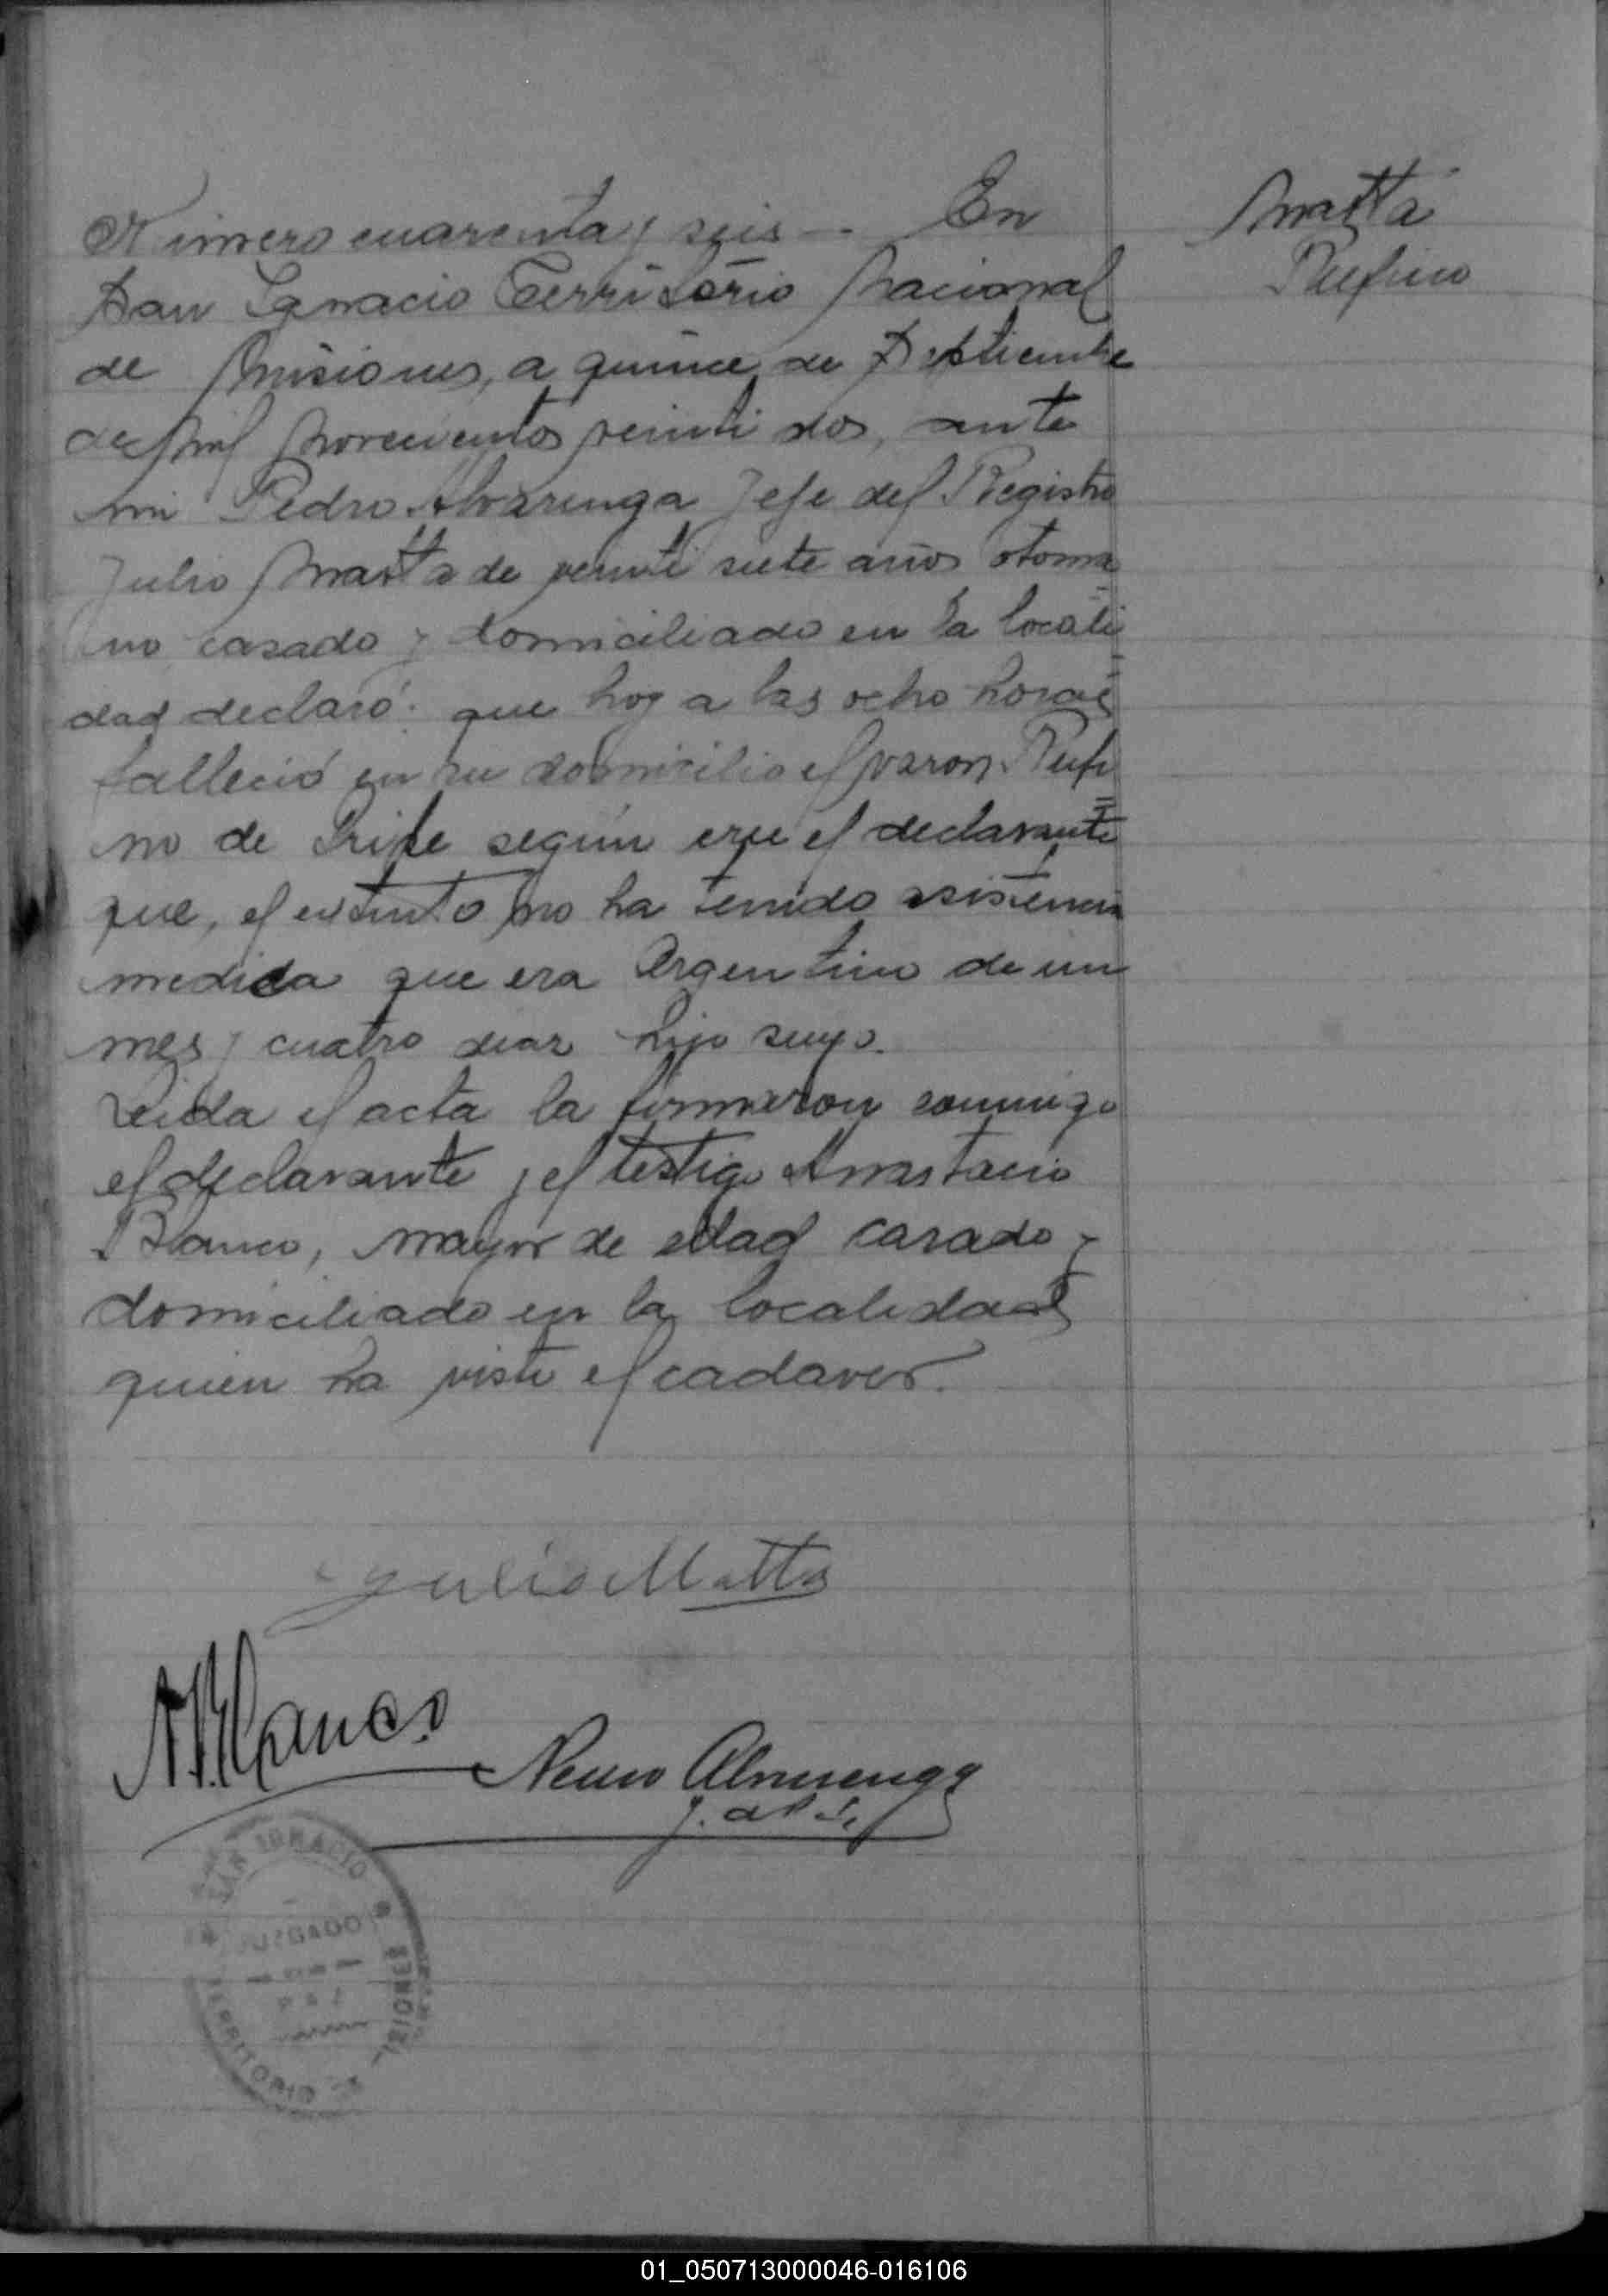 Número cuarenta y seis — En
San Ignacio Territorio Nacional
de Misiones, a quince de Septiembre
de mil novecientos veinti dos, ante
mi Pedro Alvarenga Jefe del Registro
Julio Matta de veinti siete años otoma
no casado y domiciliado en la locali
dad declaró: que hoy a las ocho horas
falleció en su domicilio el varon Rufi
no de Gripe según cree el declarante
que, el extinto no ha tenido asistencia
medica que era Argentino de un
mes y cuatro dias hijo suyo.
Leida el acta la firmaron conmigo
el declarante y el testigo Anastacio
Blanco, mayor de edad casado y
domiciliado en la localidad
quien ha visto el cadaver.
Matta
Rufino
Julio Matta
A. Blanco
Alvarenga
SAN IGNACIO
JUZGADO
PAZ
TERRITORIO MISIONES
01_050713000046-016106